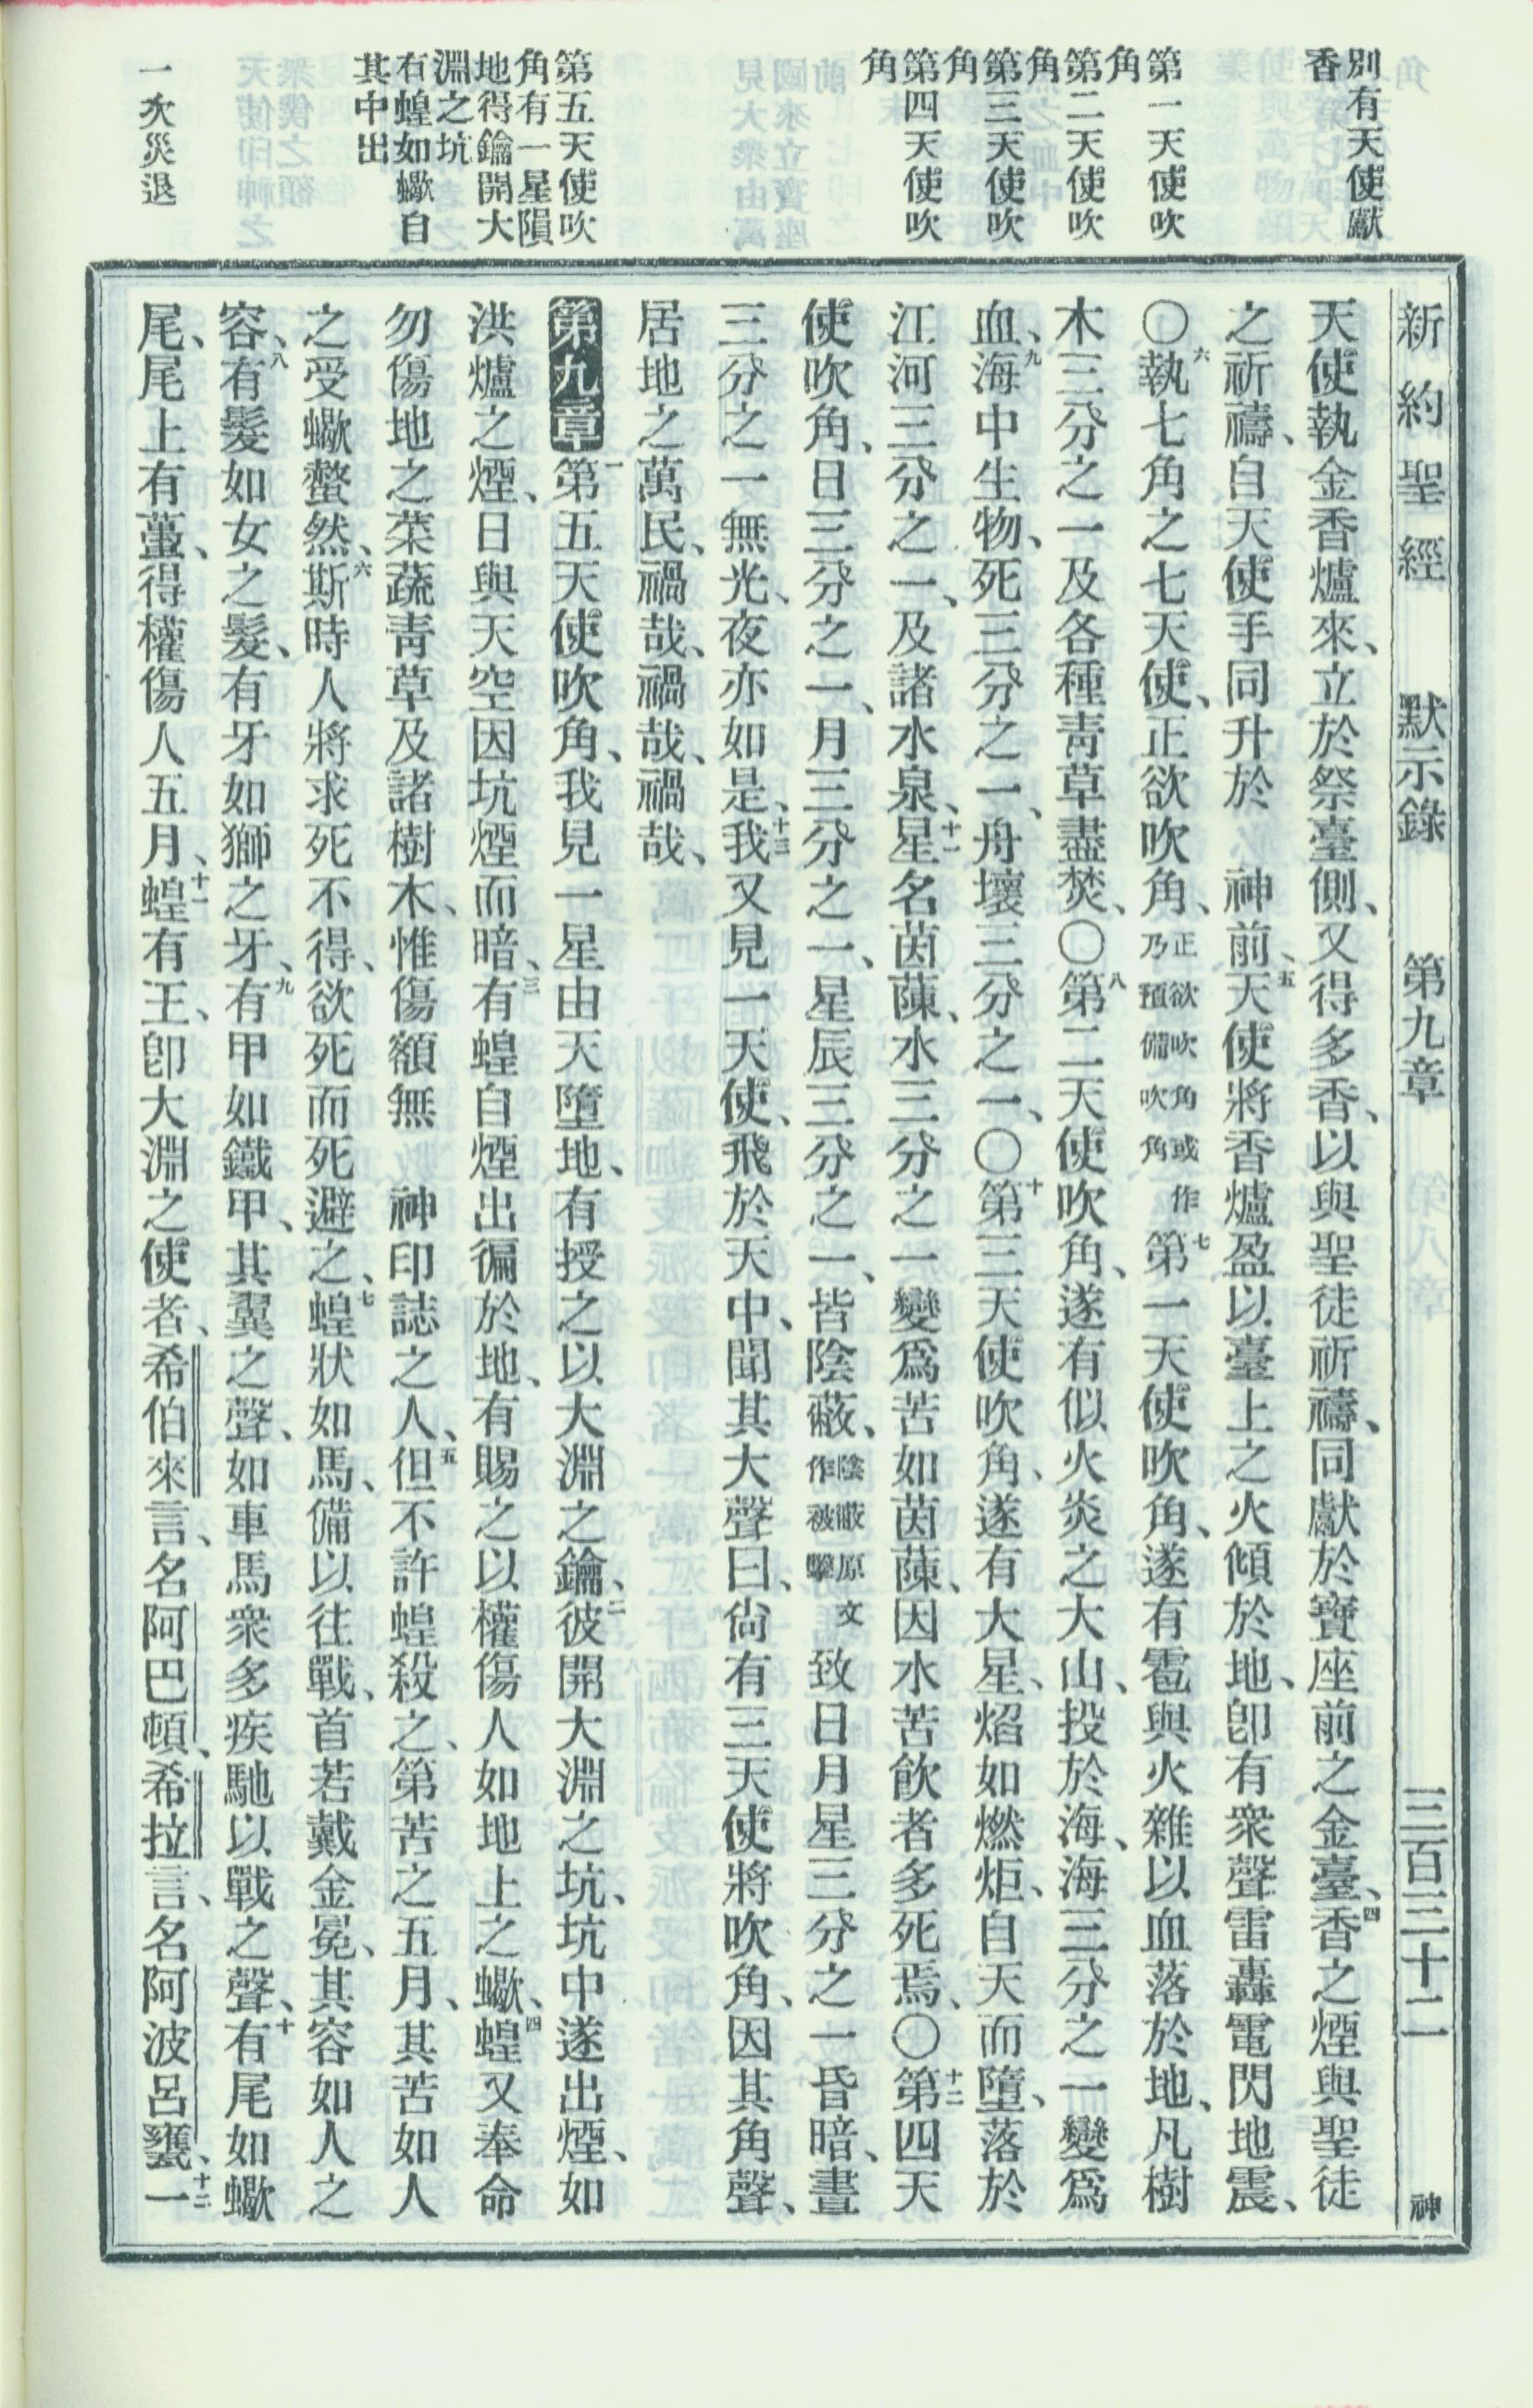 別有天使獻
香
第一天使吹
角
第二天使吹
角
第三天使吹
角
第四天使吹
角
第五天使吹
角有一星隕
地得鑰開大
淵之坑
有蝗如蠍自
其中出
一次災退
新約聖經 默示錄 第九章 三百三十二 神
天使執金香爐來、立於祭臺側、又得多香、以與聖徒祈禱、同獻於寶座前之金臺、四香之煙與聖徒
之祈禱、自天使手同升於 神前、五天使將香爐盈以臺上之火傾於地、卽有衆聲雷轟電閃地震、
〇六執七角之七天使、正欲吹角、正欲吹角或作乃預備吹角七第一天使吹角、遂有雹與火雜以血落於地、凡樹
木三分之一及各種靑草盡焚、〇八第二天使吹角、遂有似火炎之大山、投於海、海三分之一變爲
血、九海中生物、死三分之一、舟壞三分之一、〇十第三天使吹角、遂有大星、熖如燃炬、自天而墮、落於
江河三分之一、及諸水泉、十一星名茵蔯、水三分之一變爲苦如茵蔯、因水苦飮者多死焉、〇十二第四天
使吹角、日三分之一、月三分之一、星辰三分之一、皆陰蔽、陰蔽原文作被擊致日月星三分之一昏暗、晝
三分之一無光、夜亦如是、十三我又見一天使、飛於天中、聞其大聲曰、尙有三天使將吹角、因其角聲、
居地之萬民、禍哉、禍哉、禍哉、
第九章 一第五天使吹角、我見一星由天墮地、有授之以大淵之鑰、二彼開大淵之坑、坑中遂出煙、如
洪爐之煙、日與天空因坑煙而暗、三有蝗自煙出徧於地、有賜之以權傷人如地上之蠍、四蝗又奉命
勿傷地之菜蔬靑草及諸樹木、惟傷額無 神印誌之人、五但不許蝗殺之、第苦之五月、其苦如人
之受蠍螫然、六斯時人將求死不得、欲死而死避之、七蝗狀如馬、備以往戰、首若戴金冕、其容如人之
容、八有髮如女之髮、有牙如獅之牙、九有甲如鐵甲、其翼之聲、如車馬衆多疾馳以戰之聲、十有尾如蠍
尾、尾上有蠆、得權傷人五月、十一蝗有王、卽大淵之使者、希伯來言、名阿巴頓、希拉言、名阿波呂甕、十二一